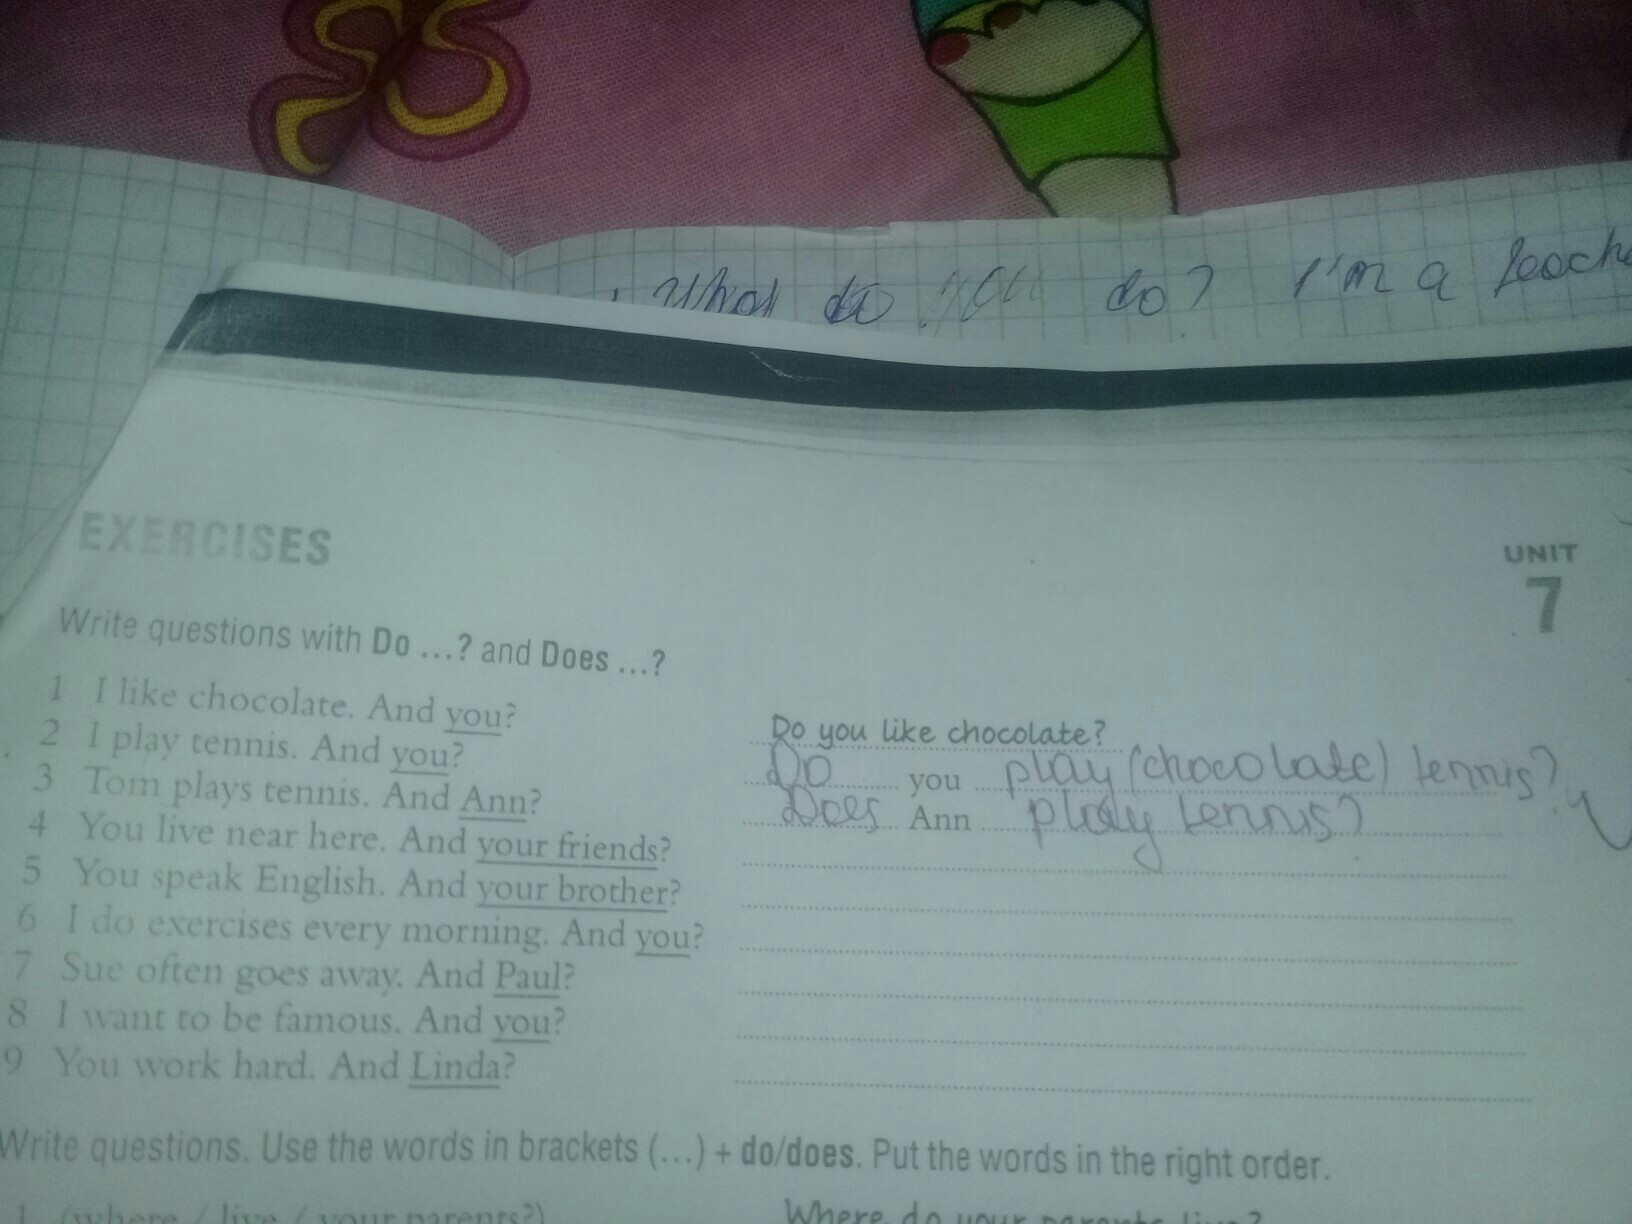 What do you do? I'm a teache
EXERCISES
UNIT
7
Write questions with Do ...? and Does ...?
1 I like chocolate. And you? Do you like chocolate?
2 I play tennis. And you? Do you play (chocolate) tennis?
3 Tom plays tennis. And Ann? Does Ann play tennis?
4 You live near here. And your friends?
5 You speak English. And your brother?
6 I do exercises every morning. And you?
7 Sue often goes away. And Paul?
8 I want to be famous. And you?
9 You work hard. And Linda?
Write questions. Use the words in brackets (...) + do/does. Put the words in the right order.
1 (where / live / your parents?) Where do your parents live?